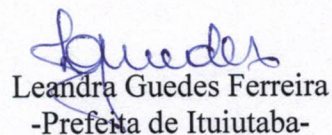 Guedes
Leandra Guedes Ferreira
-Prefeita de Ituiutaba-